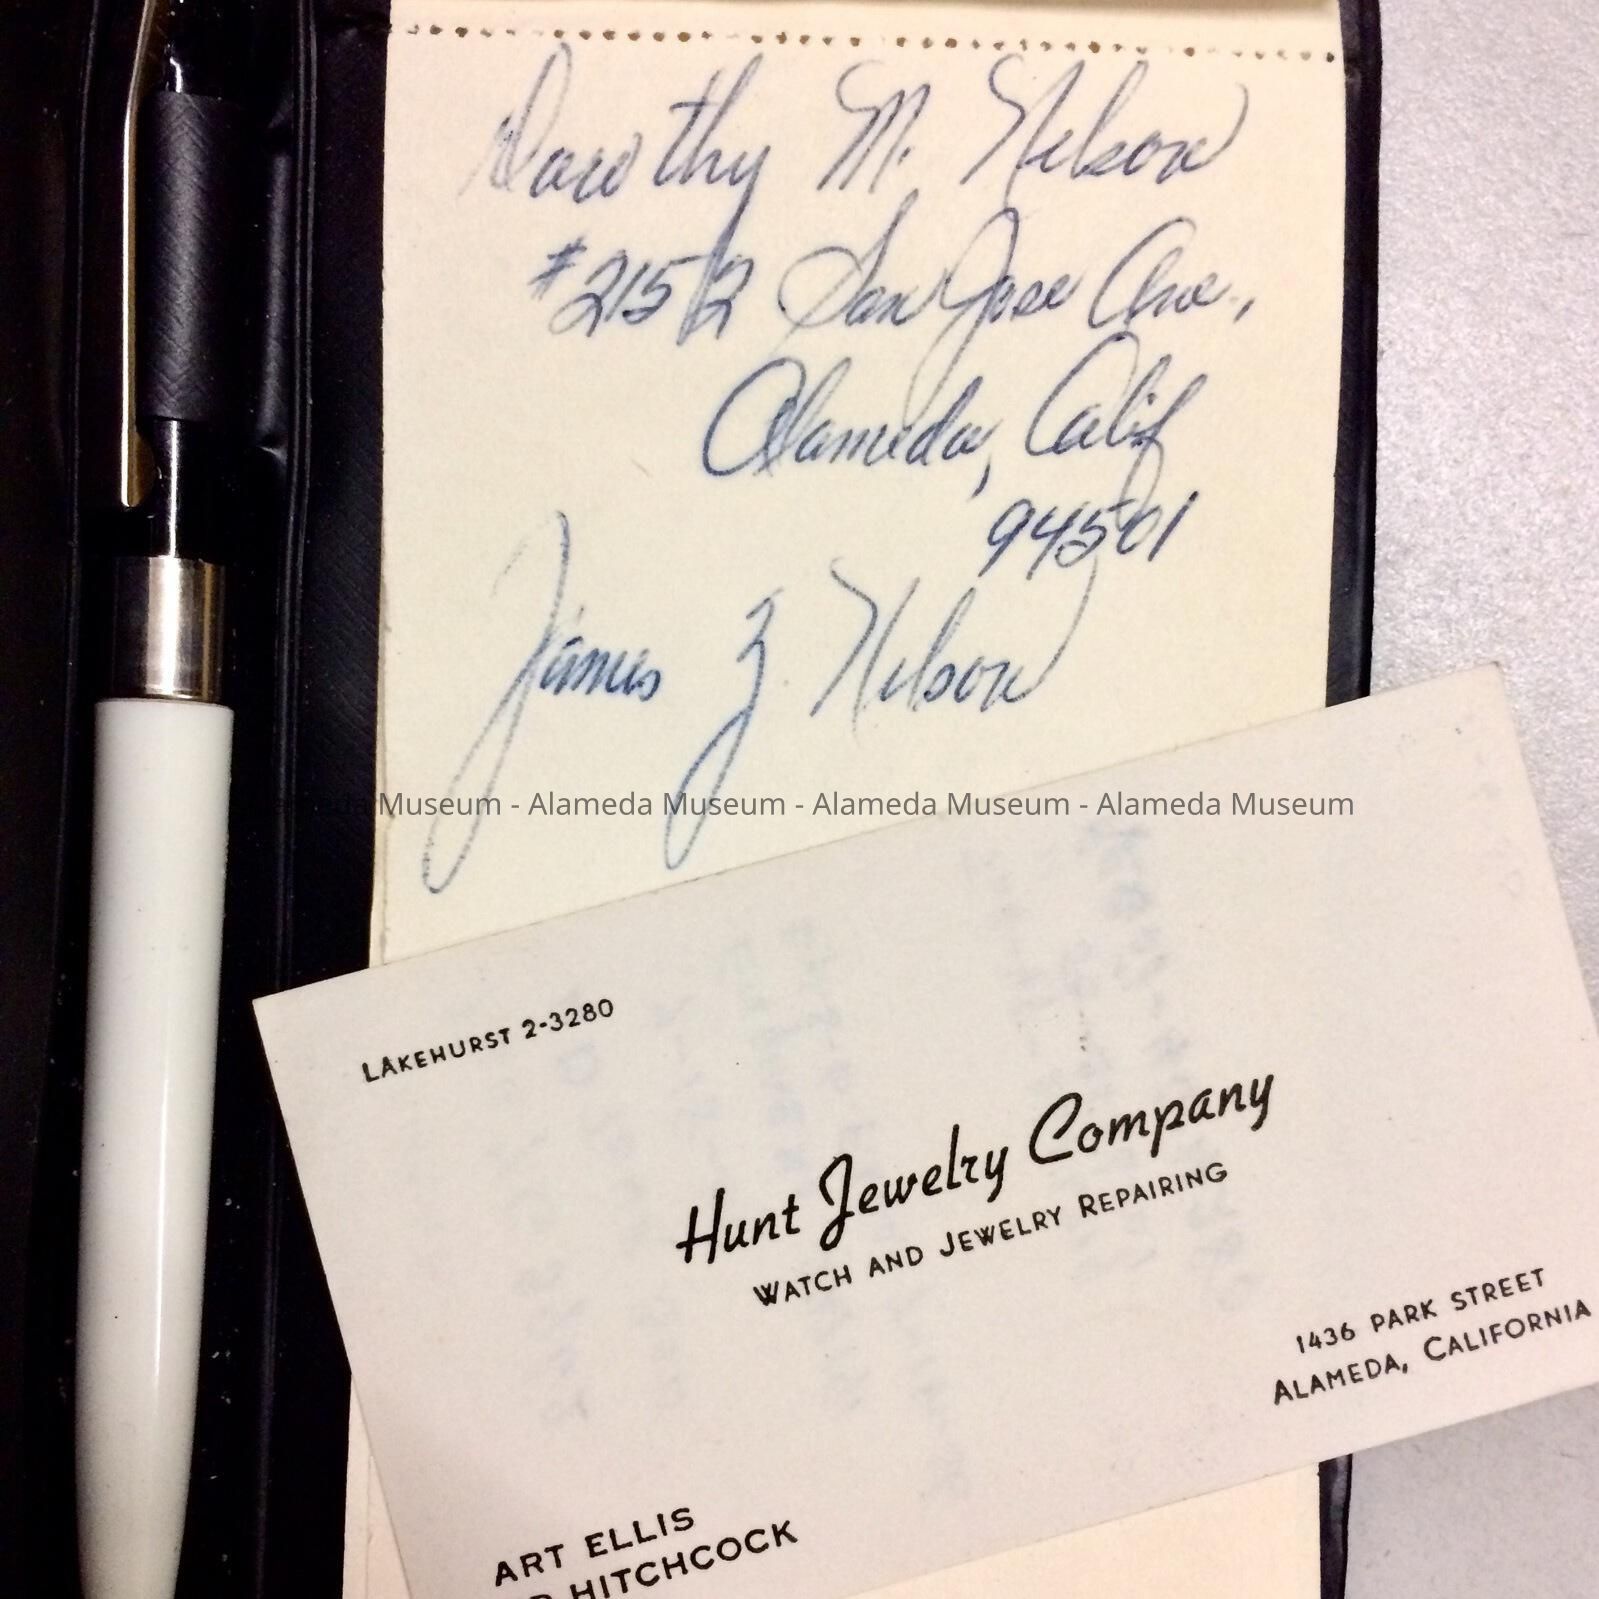 Dorothy M. Nelson
#2152 San Jose Ave.,
Alameda, Calif
94501
James Z Nelson
Museum - Alameda Museum - Alameda Museum - Alameda Museum
LAKEHURST 2-3280
Hunt Jewelry Company
WATCH AND JEWELRY REPAIRING
1436 PARK STREET
ALAMEDA, CALIFORNIA
ART ELLIS
HITCHCOCK